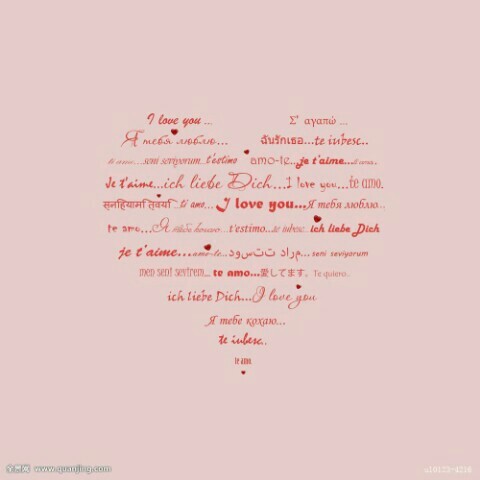 I love you ... Σ' αγαπώ ...
Я тебя люблю... ฉันรักเธอ...te iubesc..
...seni seviyorum...t'estimo amo-te...je t'aime...
Je t'aime...ich liebe Dich...I love you...te amo.
te amo... I love you...Я тебя люблю..
te amo...Я t'estimo...te iubesc ich liebe Dich
je t'aime...amo-te...دوستت دارم... seni seviyorum
men seni sevirem... te amo...愛してます。Te quiero..
ich liebe Dich...I love you
Я тебе кохаю...
te iubesc..
te amo
全景网 www.quanjing.com